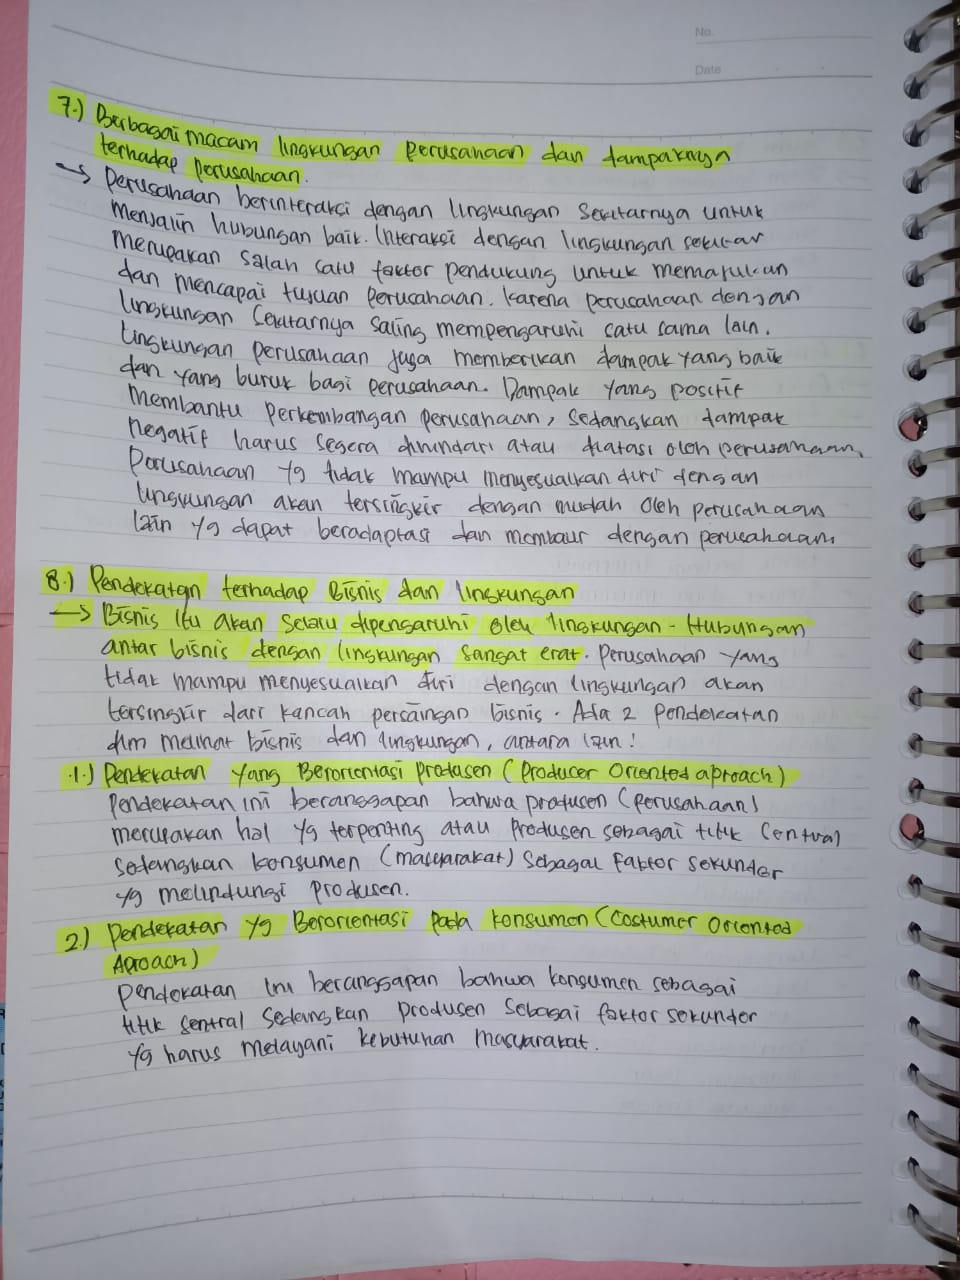 No.
Date
7.) Berbagai macam lingkungan perusahaan dan dampaknya
terhadap perusahaan.
→ Perusahaan berinteraksi dengan lingkungan sekitarnya untuk
menjalin hubungan baik. Interaksi dengan lingkungan sekitar
merupakan salah satu faktor pendukung untuk memajukan
dan mencapai tujuan perusahaan. Karena perusahaan dengan
lingkungan sekitarnya saling mempengaruhi satu sama lain.
Lingkungan perusahaan juga memberikan dampak yang baik
dan yang buruk bagi perusahaan. Dampak yang positif
membantu perkembangan perusahaan, sedangkan dampak
negatif harus segera dihindari atau diatasi oleh perusahaan,
Perusahaan yg tidak mampu menyesuaikan diri dengan
lingkungan akan tersingkir dengan mudah oleh perusahaan
lain yg dapat beradaptasi dan membaur dengan perusahaan.
8.) Pendekatan terhadap Bisnis dan lingkungan
→ Bisnis itu akan selalu dipengaruhi oleh lingkungan - Hubungan
antar bisnis dengan lingkungan sangat erat. Perusahaan yang
tidak mampu menyesuaikan diri dengan lingkungan akan
tersingkir dari kancah persaingan bisnis. Ada 2 pendekatan
dlm melihat bisnis dan lingkungan, antara lain:
1.) Pendekatan yang Berorientasi produsen (Producer Oriented aproach)
Pendekatan ini beranggapan bahwa produsen (perusahaan)
merupakan hal yg terpenting atau produsen sebagai titik Central
sedangkan konsumen (masyarakat) sebagai faktor sekunder
yg melindungi produsen.
2.) Pendekatan yg Berorientasi pada konsumen (Costumer Oriented
Aproach)
Pendekatan ini beranggapan bahwa konsumen sebagai
titik sentral sedangkan produsen sebagai faktor sekunder
yg harus melayani kebutuhan masyarakat.